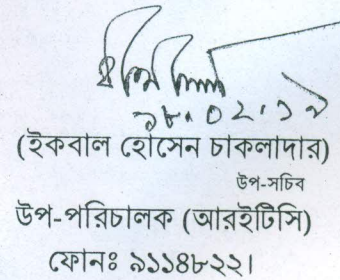 ১৮.০২.১৯
(ইকবাল হোসেন চাকলাদার)
উপ-সচিব
উপ-পরিচালক (আরইটিসি)
ফোনঃ ৯১১৪৮২২।